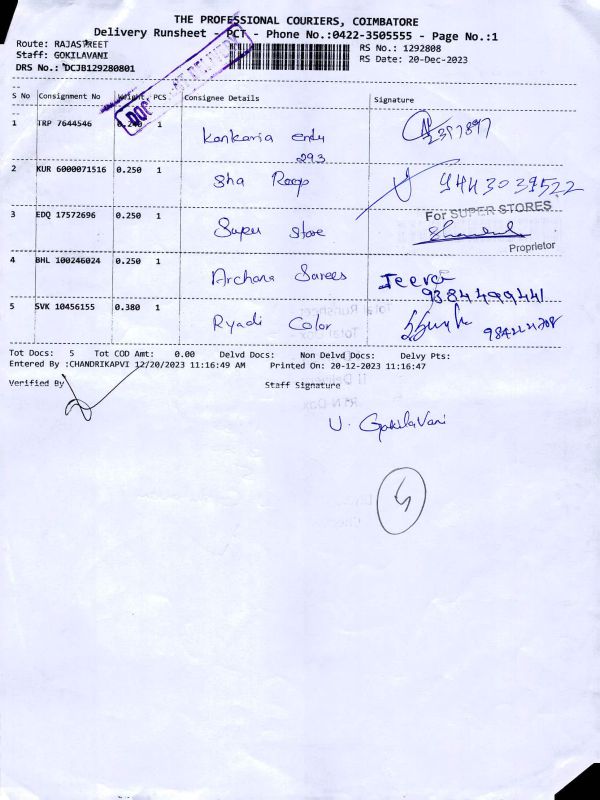 THE PROFESSIONAL COURIERS, COIMBATORE
Delivery Runsheet - PCT - Phone No.:0422-3505555 - Page No.:1
Route: RAJASTREET
RS No.: 1292808
Staff: GOKILAVANI
RS Date: 20-Dec-2023
DRS No.: DCJB129280801
S No Consignment No Weight PCS Consignee Details Signature
1 TRP 7644546 1 Kankaria
293
2 KUR 6000071516 0.250 1 Sha Roop 9443039522
3 EDQ 17572696 0.250 1 Super Store
For SUPER STORES
Proprietor
4 BHL 100246024 0.250 1 Archana Sarees Jeeva
9384499441
5 SVK 10456155 0.380 1 Color
Tot Docs: 5 Tot COD Amt: 0.00 Delvd Docs: Non Delvd Docs: Delvy Pts:
Entered By :CHANDRIKAPVI 12/20/2023 11:16:49 AM Printed On: 20-12-2023 11:16:47
Verified By Staff Signature
U. GokilaVani
5